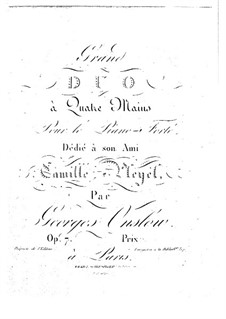 Grand
DUO
à Quatre Mains
Pour le Piano-Forté
Dédié à son Ami
Camille Pleyel,
Par
Georges Onslow.
Op. 7. Prix
à Paris,